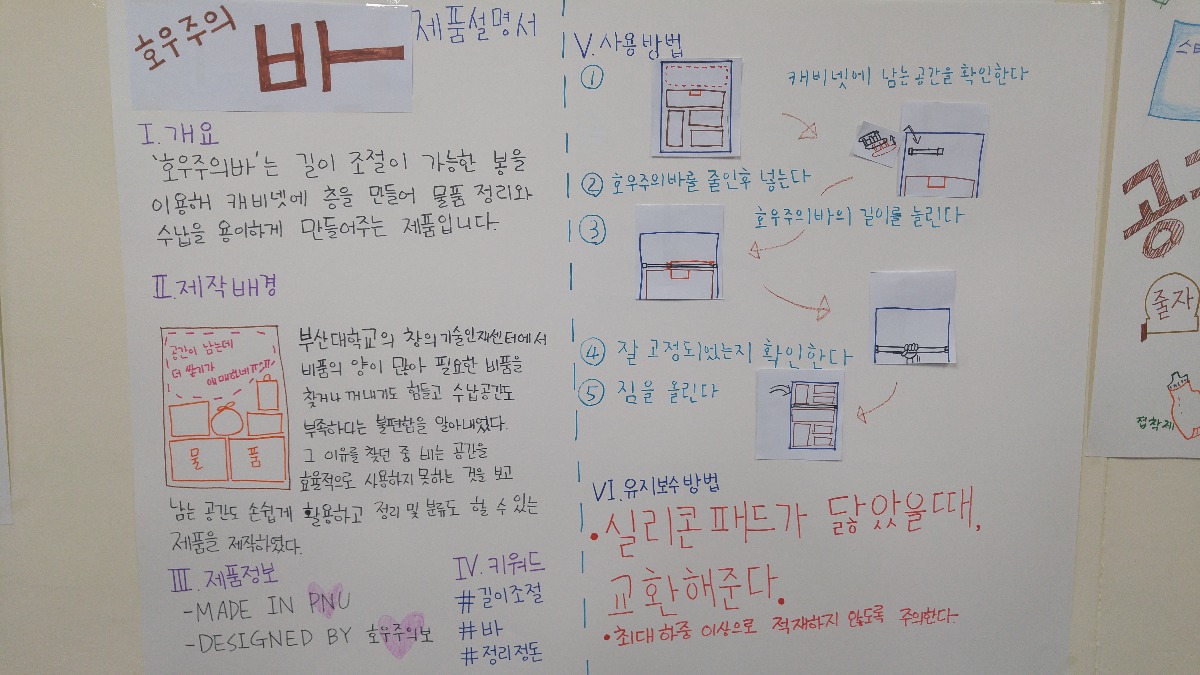 호우주의
바
제품설명서
I. 개요
'호우주의바'는 길이 조절이 가능한 봉을
이용해 캐비넷에 층을 만들어 물품 정리와
수납을 용이하게 만들어주는 제품입니다.
II. 제작배경
공간이 남는데
더 쌓기가
애매한데
물 품
부산대학교의 창의기술인재센터에서
비품의 양이 많아 필요한 비품을
찾거나 꺼내기도 힘들고 수납공간도
부족하다는 불편함을 알아내었다.
그 이유를 찾던 중 비는 공간을
효율적으로 사용하지 못하는 것을 보고
남는 공간도 손쉽게 활용하고 정리 및 분류도 할 수 있는
제품을 제작하였다.
III. 제품정보
-MADE IN PNU
-DESIGNED BY 호우주의보
IV. 키워드
#길이조절
#바
#정리정돈
V. 사용방법
①
캐비넷에 남는공간을 확인한다
② 호우주의바를 줄인후 넣는다
③
호우주의바의 길이를 늘린다
④ 잘 고정되었는지 확인한다
⑤ 짐을 올린다
VI. 유지보수방법
•실리콘패드가 닳았을때,
교환해준다.
•최대하중 이상으로 적재하지 않도록 주의한다.
줄자
접착제